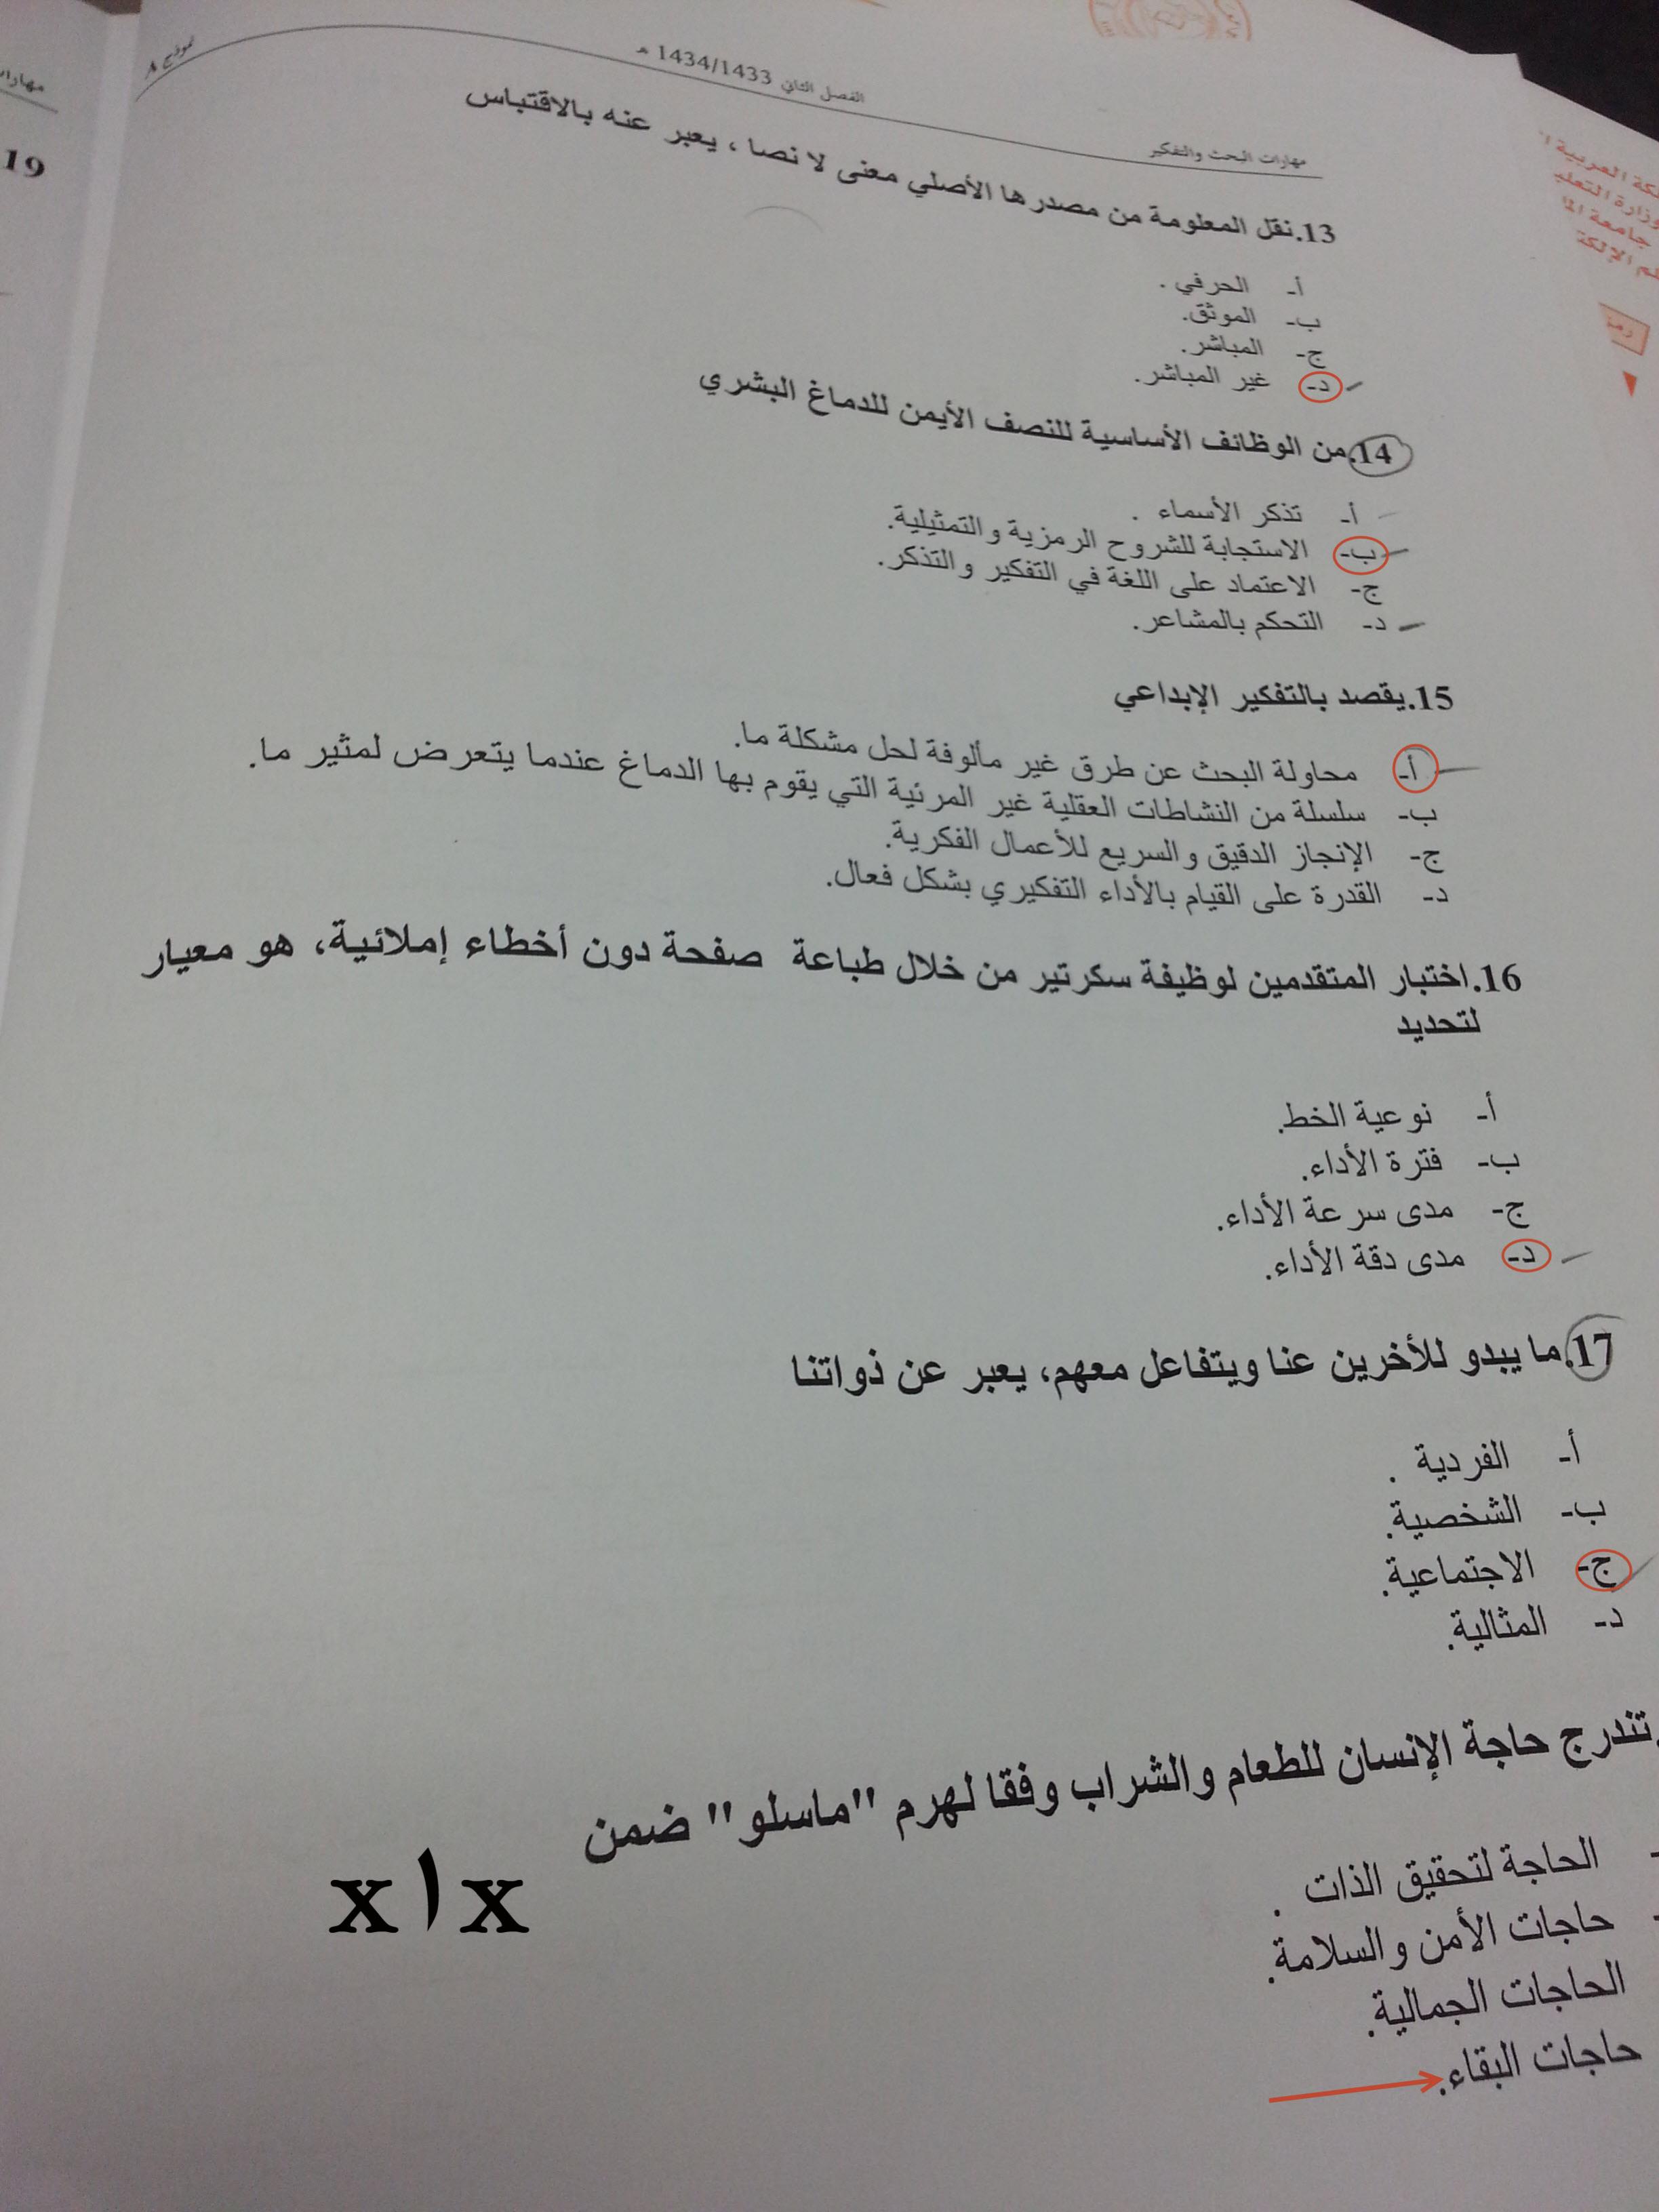 نموذج ٨
الفصل الثاني 1434/1433 هـ
مهارات البحث والتفكير
13.نقل المعلومة من مصدرها الأصلي معنى لا نصا ، يعبر عنه بالاقتباس
أ- الحرفي .
ب- الموثق.
ج- المباشر.
د- غير المباشر.
14.من الوظائف الأساسية للنصف الأيمن للدماغ البشري
أ- تذكر الأسماء .
ب- الاستجابة للشروح الرمزية والتمثيلية.
ج- الاعتماد على اللغة في التفكير والتذكر.
د- التحكم بالمشاعر.
15.يقصد بالتفكير الإبداعي
أ- محاولة البحث عن طرق غير مألوفة لحل مشكلة ما.
ب- سلسلة من النشاطات العقلية غير المرئية التي يقوم بها الدماغ عندما يتعرض لمثير ما.
ج- الإنجاز الدقيق والسريع للأعمال الفكرية.
د- القدرة على القيام بالأداء التفكيري بشكل فعال.
16.اختبار المتقدمين لوظيفة سكرتير من خلال طباعة صفحة دون أخطاء إملائية، هو معيار
لتحديد
أ- نوعية الخط.
ب- فترة الأداء.
ج- مدى سرعة الأداء.
د- مدى دقة الأداء.
17.ما يبدو للأخرين عنا ويتفاعل معهم، يعبر عن ذواتنا
أ- الفردية .
ب- الشخصية.
ج- الاجتماعية.
د- المثالية.
.تندرج حاجة الإنسان للطعام والشراب وفقا لهرم "ماسلو" ضمن
- الحاجة لتحقيق الذات .
- حاجات الأمن والسلامة.
الحاجات الجمالية.
حاجات البقاء.
x١x
19
رمز